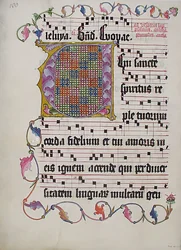 leluya. Evovae.
eni sancte
spiritus re
ple tuorum
corda fidelium et tui amoris in
eis ignem accende qui per diver
sitatem linguarum multarū gen